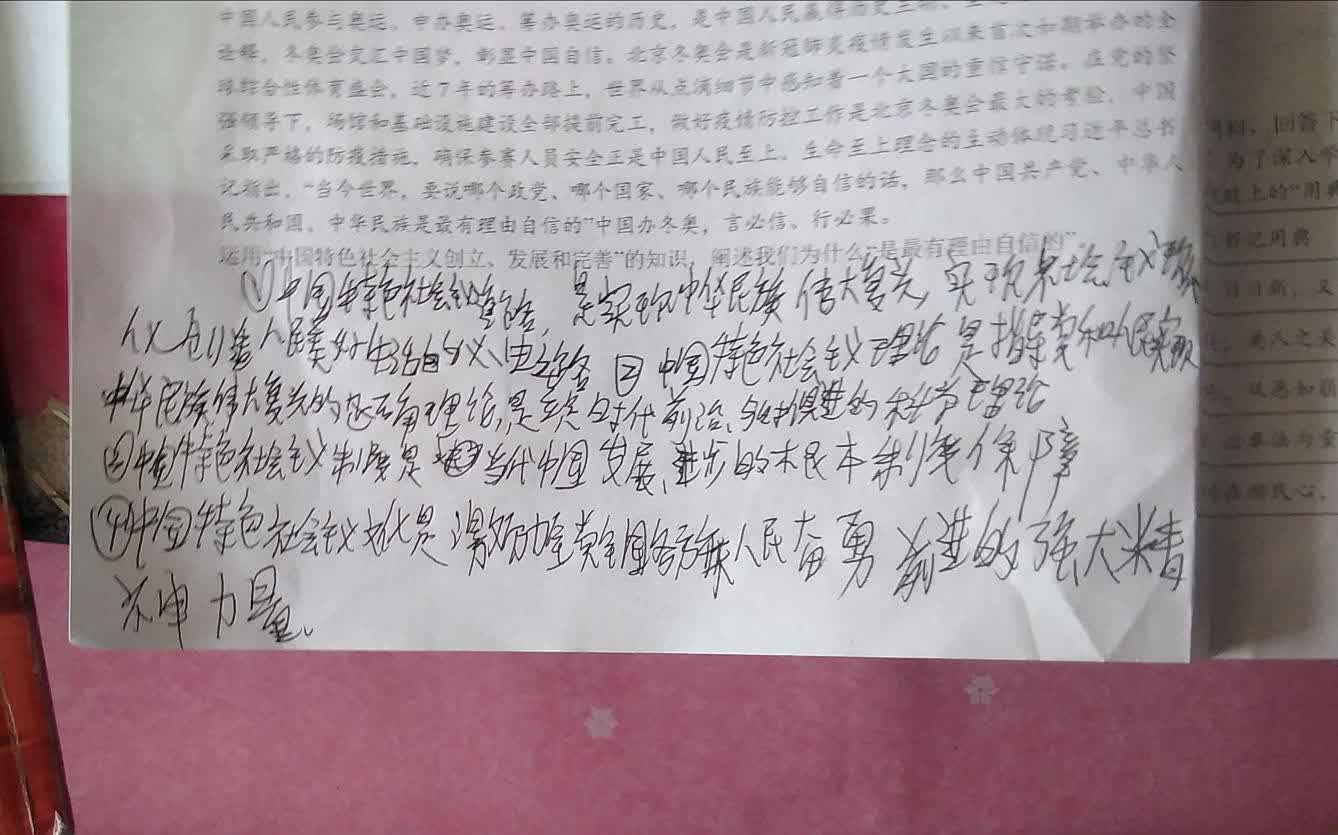 中国人民参与奥运、申办奥运、筹办奥运的历史，是中国人民赢得历史
诠释。冬奥会交汇中国梦，彰显中国自信。北京冬奥会是新冠肺炎疫情发生以来首次如期举办的全
球综合性体育盛会，近7年的筹办路上，世界从点滴细节中感知着一个大国的重信守诺。在党的坚
强领导下，场馆和基础设施建设全部提前完工，做好疫情防控工作是北京冬奥会最大的考验，中国
采取严格的防疫措施，确保参赛人员安全正是中国人民至上、生命至上理念的主动体现习近平总书
记指出，“当今世界，要说哪个政党、哪个国家、哪个民族能够自信的话，那么中国共产党、中华人
民共和国、中华民族是最有理由自信的”中国办冬奥，言必信、行必果。
运用“中国特色社会主义创立、发展和完善”的知识，阐述我们为什么“是最有理由自信的”
①中国特色社会主义道路，是实现中华民族伟大复兴，实现社会主义现
代化创造人民美好生活的必由之路 ②中国特色社会主义理论是指导党和人民实现
中华民族伟大复兴的正确理论，是立于时代前沿、与时俱进的科学理论
③中国特色社会主义制度是当代中国发展、进步的根本制度保障
④中国特色社会主义文化是激励全党全国各族人民奋勇前进的强大精
神力量。
料，回答下
为了深入学
上的“用典
书记用典
日日新，又
从恶如崩
民心，